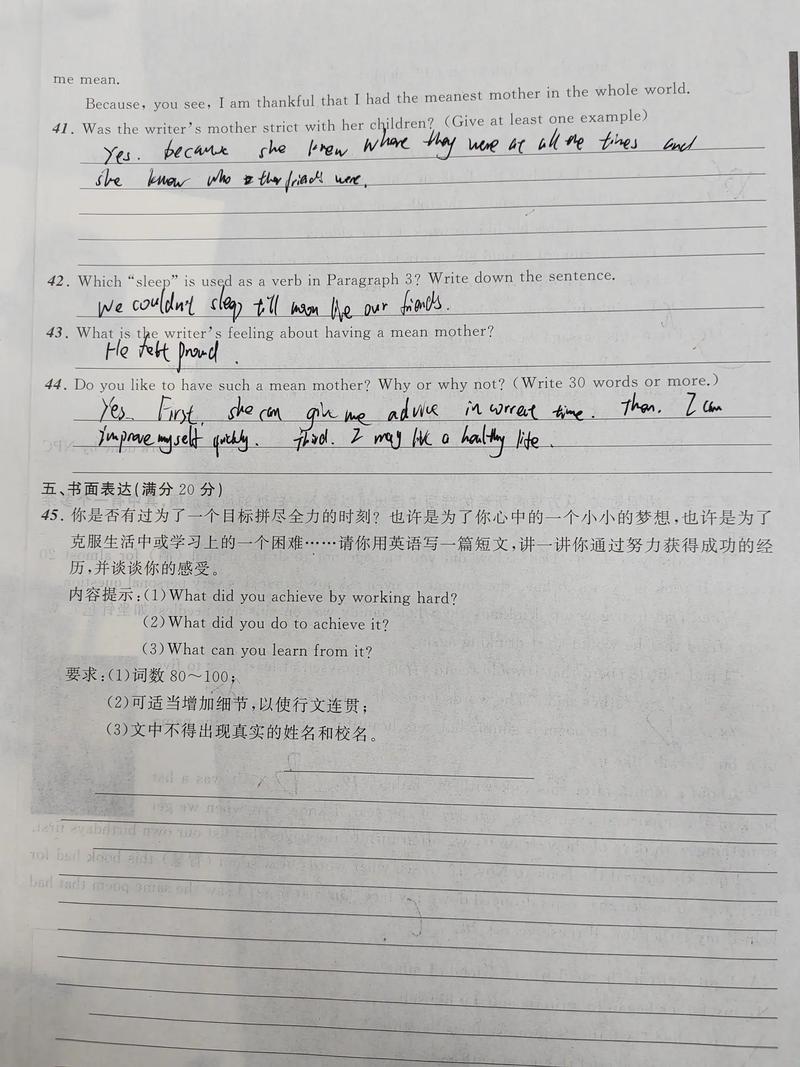 me mean.
Because, you see, I am thankful that I had the meanest mother in the whole world.
41. Was the writer's mother strict with her children? (Give at least one example)
Yes. because she knew where they were at all the times and
she know who their friends were.
42. Which "sleep" is used as a verb in Paragraph 3? Write down the sentence.
We couldn't sleep till noon like our friends.
43. What is the writer's feeling about having a mean mother?
He felt proud.
44. Do you like to have such a mean mother? Why or why not? (Write 30 words or more.)
Yes. First, she can give me advice in correct time. Then. I can
improve myself quickly. Third. I may like a healthy life.
五、书面表达(满分 20 分)
45. 你是否有过为了一个目标拼尽全力的时刻？也许是为了你心中的一个小小的梦想,也许是为了
克服生活中或学习上的一个困难……请你用英语写一篇短文,讲一讲你通过努力获得成功的经
历,并谈谈你的感受。
内容提示:(1)What did you achieve by working hard?
(2)What did you do to achieve it?
(3)What can you learn from it?
要求:(1)词数 80~100;
(2)可适当增加细节,以使行文连贯;
(3)文中不得出现真实的姓名和校名。